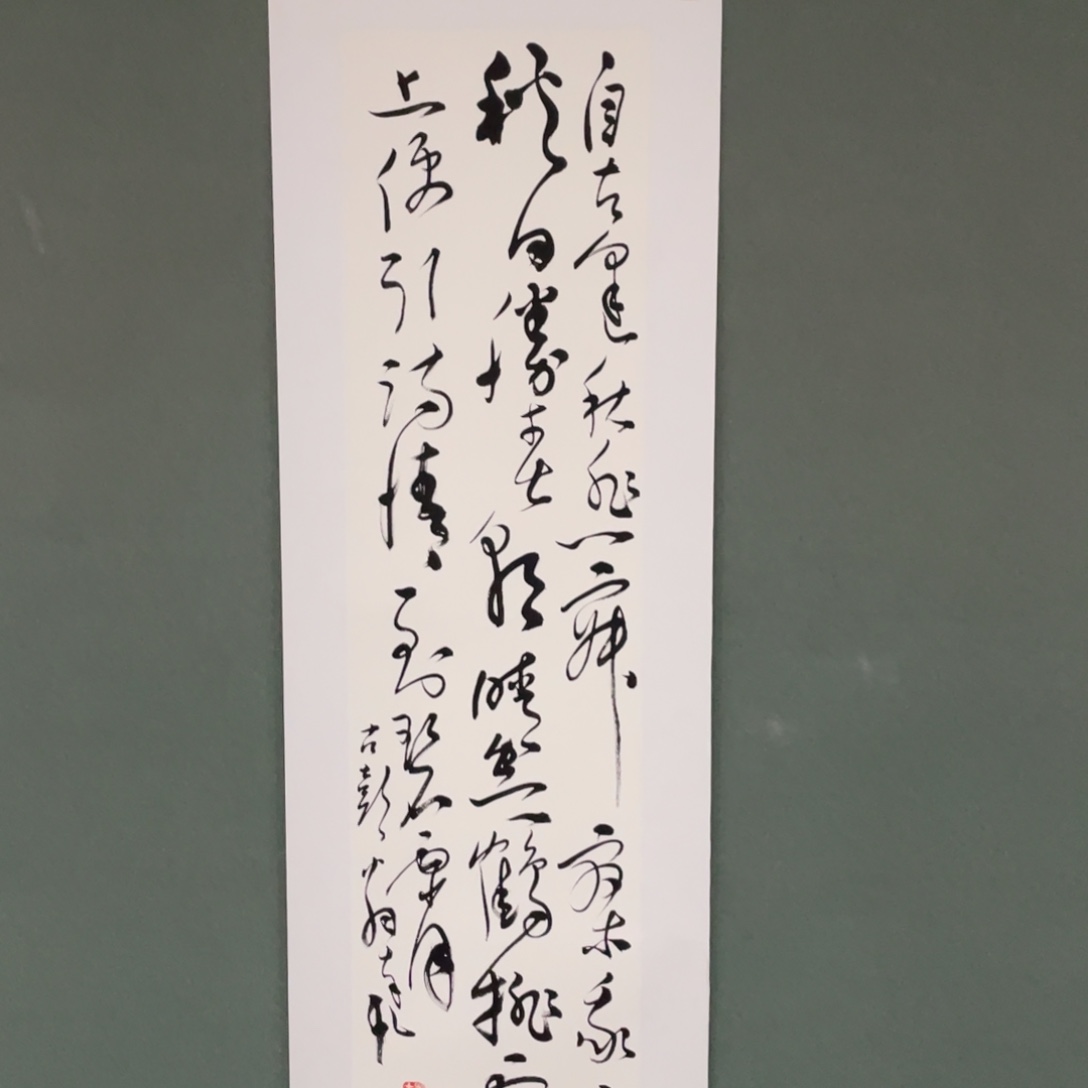 自古逢秋悲寂寥我
秋日勝春朝晴空一鶴排
上便引詩情到碧霄
古彭